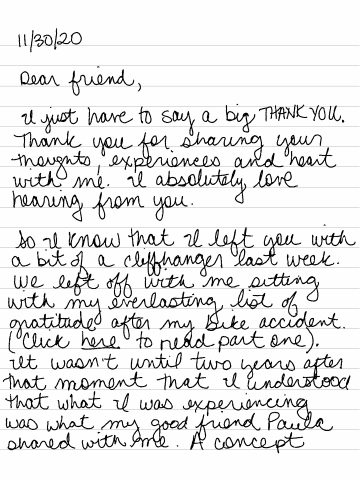 11/30/20
Dear friend,
I just have to say a big THANK YOU.
Thank you for sharing your
thoughts, experiences and heart
with me. I absolutely love
hearing from you.
So I know that I left you with
a bit of a cliffhanger last week.
We left off with me sitting
with my everlasting list of
gratitude after my bike accident.
(Click here to read part one).
It wasn't until two years after
that moment that I understood
that what I was experiencing
was what my good friend Paula
shared with me. A concept